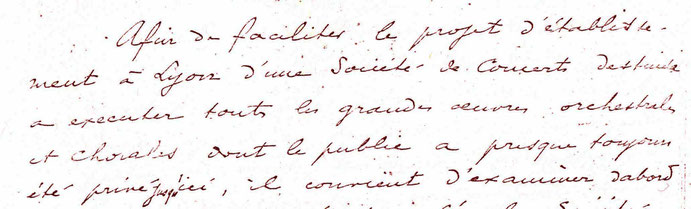 Afin de faciliter le projet d'établisse-
ment à Lyon d'une Société de Concerts destinée
a executer touts les grandes œuvres orchestrales
et Chorales dont le public a presque toujours
été privé jusqu'ici, il convient d'examiner dabord